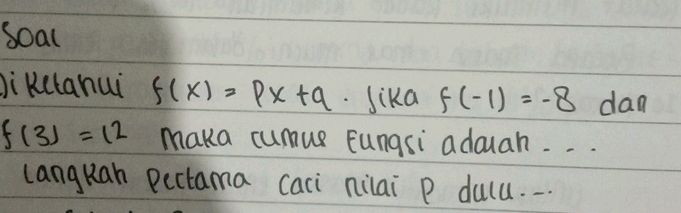 Soal
Diketahui f(x) = Px + q. Jika f(-1) = -8 dan
f(3) = 12 maka rumus fungsi adalah ...
Langkah pertama cari nilai P dulu...